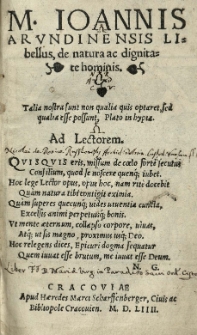 M. IOANNIS
ARVNDINENSIS LI-
bellus, de natura ac dignita-
te hominis.
Talia nostra sunt non qualia quis optaret, sed
qualia esse possunt, Plato in hypta.
Ad Lectorem.
QVISQVIS eris, missum de cœlo fortè secutus
Consilium, quod se noscere quenq; iubet.
Hoc lege Lector opus, opus hoc, nam ritè docebit
Quàm natura tibi contigit eximia.
Quàm superes quecunq; vides viuentia cuncta,
Excelsi animi perpetuiq; bonis.
Vt mente æternum, collapso corpore, viuat,
Atq; ut sis magno, proximus usq; Deo.
Hoc relegens dices, Epicuri dogma sequatur
Quem iuuat esse brutum, me iuuat esse Deum.
N. G.
CRACOVIAE
Apud Hæredes Marci Scharffenberger, Ciuis ac
Bibliopolæ Cracouien. M D. LIIII.